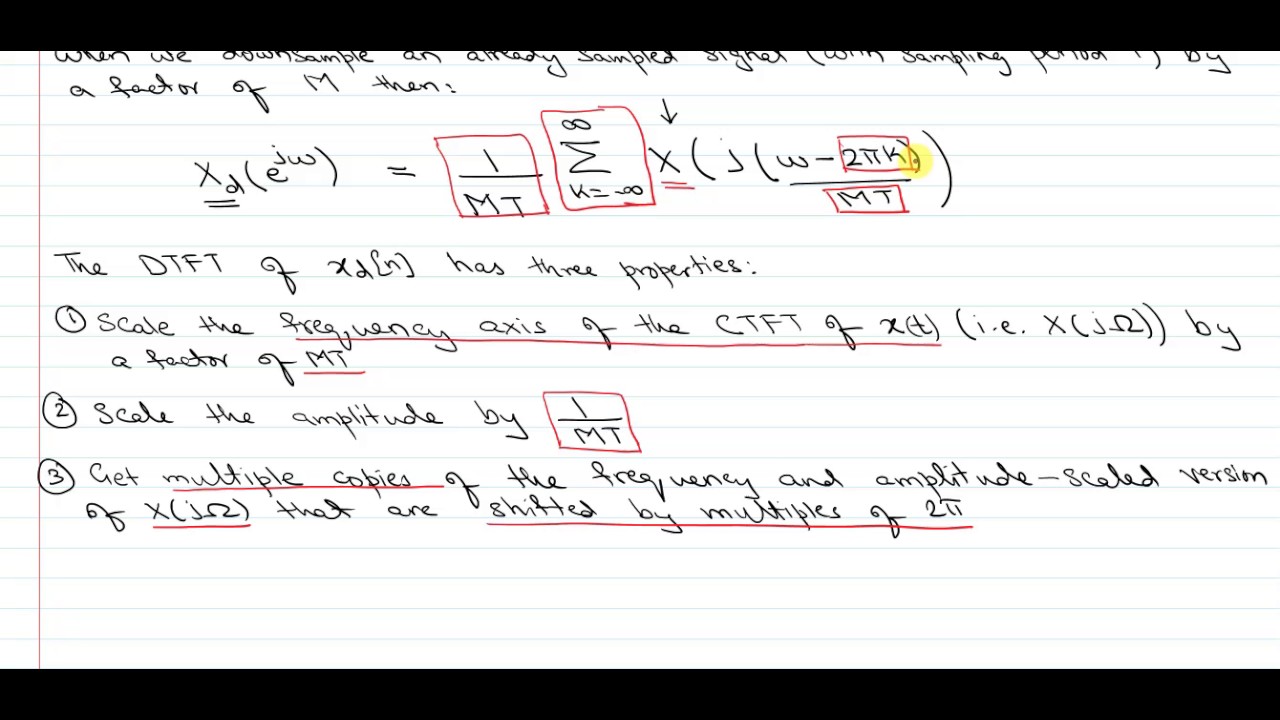 When we downsample an already sampled signal (with sampling period T) by
a factor of M then:
X_d(e^{jω}) = 1/MT ∑_{k=-∞}^{∞} X(j(ω-2πk)/MT)
The DTFT of x_d[n] has three properties:
① Scale the frequency axis of the CTFT of x(t) (i.e. X(jΩ)) by
a factor of MT
② Scale the amplitude by 1/MT
③ Get multiple copies of the frequency and amplitude-scaled version
of X(jΩ) that are shifted by multiples of 2π